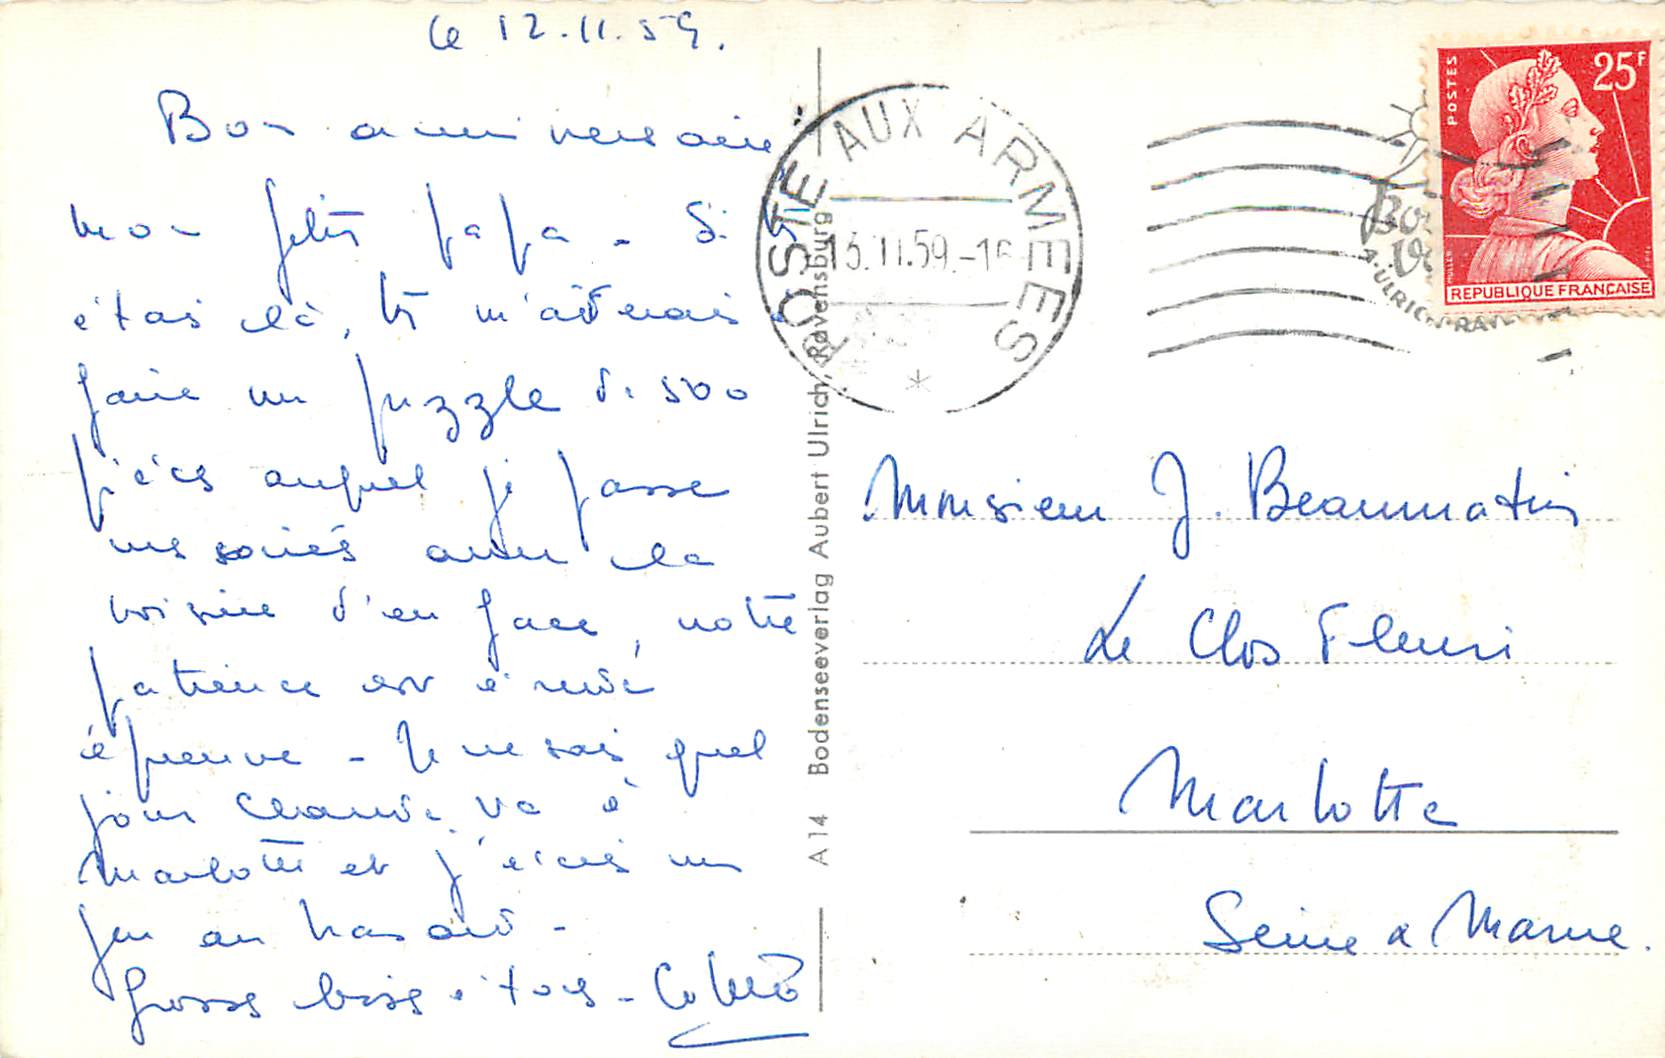 Le 12.11.59.
Bon anniversaire
mon petit papa - Si tu
étais là, tu m'aiderais à
faire un puzzle de 500
pièces auquel je passe
mes soirées avec la
voisine d'en face, notre
patience est à rude
épreuve - Je ne sais quel
jour Claude va à
Marlotte et j'écris un
peu au hasard -
Grosses bises à tous - Colette
POSTE AUX ARMEES
13.11.59.-16
*
A 14 Bodenseeverlag Aubert Ulrich, Ravensburg
POSTES
25F
MULLER
REPUBLIQUE FRANÇAISE
A. ULRICH RAV
Monsieur J. Beaumatin
Le Clos Fleuri
Marlotte
Seine & Marne.